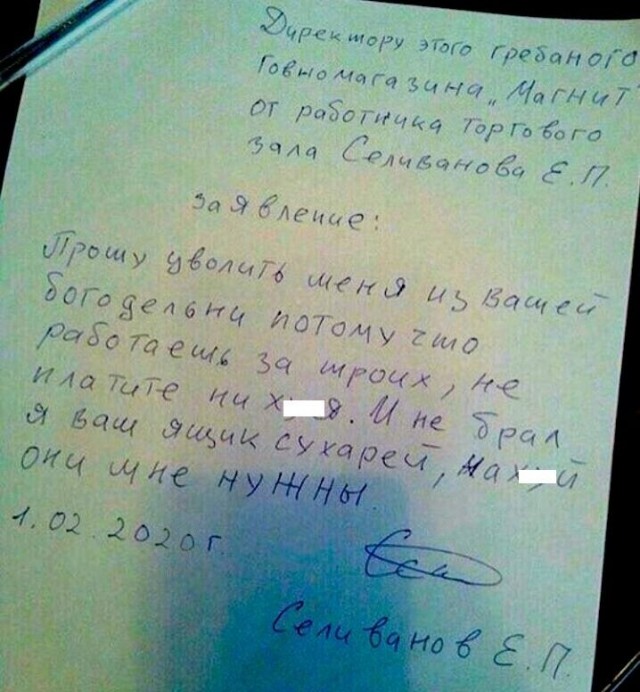 Директору этого гребаного
говномагазина „Магнит"
от работника торгового
зала Селиванова Е.П.
заявление:
Прошу уволить меня из вашей
богодельни потому что
работаешь за троих, не
платите ни х я. И не брал
я ваш ящик сухарей, нах й
они мне нужны.
1.02.2020г.
Селиванов Е.П.